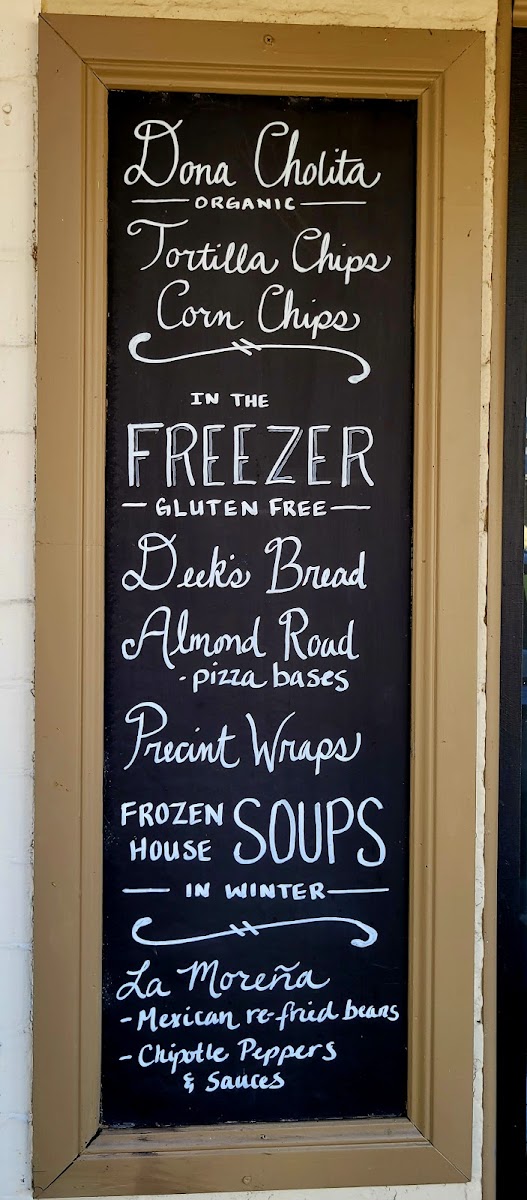 Dona Cholita
ORGANIC
Tortilla Chips
Corn Chips
IN THE
FREEZER
GLUTEN FREE
Deek's Bread
Almond Road
- pizza bases
Precint Wraps
FROZEN
HOUSE SOUPS
IN WINTER
La Moreña
- Mexican re-fried beans
- Chipotle Peppers
& Sauces